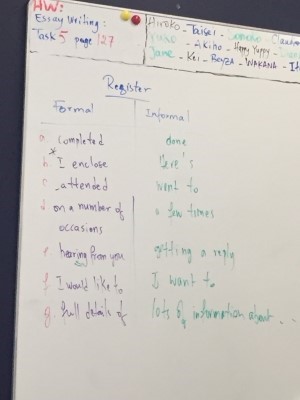 HW:
Essay Writing:
Task 5 page 127
Hiroko - Taisei - Claudia
- Akiho - Happy Yuppy -
Jane - Kei - - WAKANA -
Register
Formal Informal
a completed done
b * I enclose Here's
c attended went to
d on a number of a few times
occasions
e hearing from you getting a reply
f I would like to I want to
g full details of lots of information about...